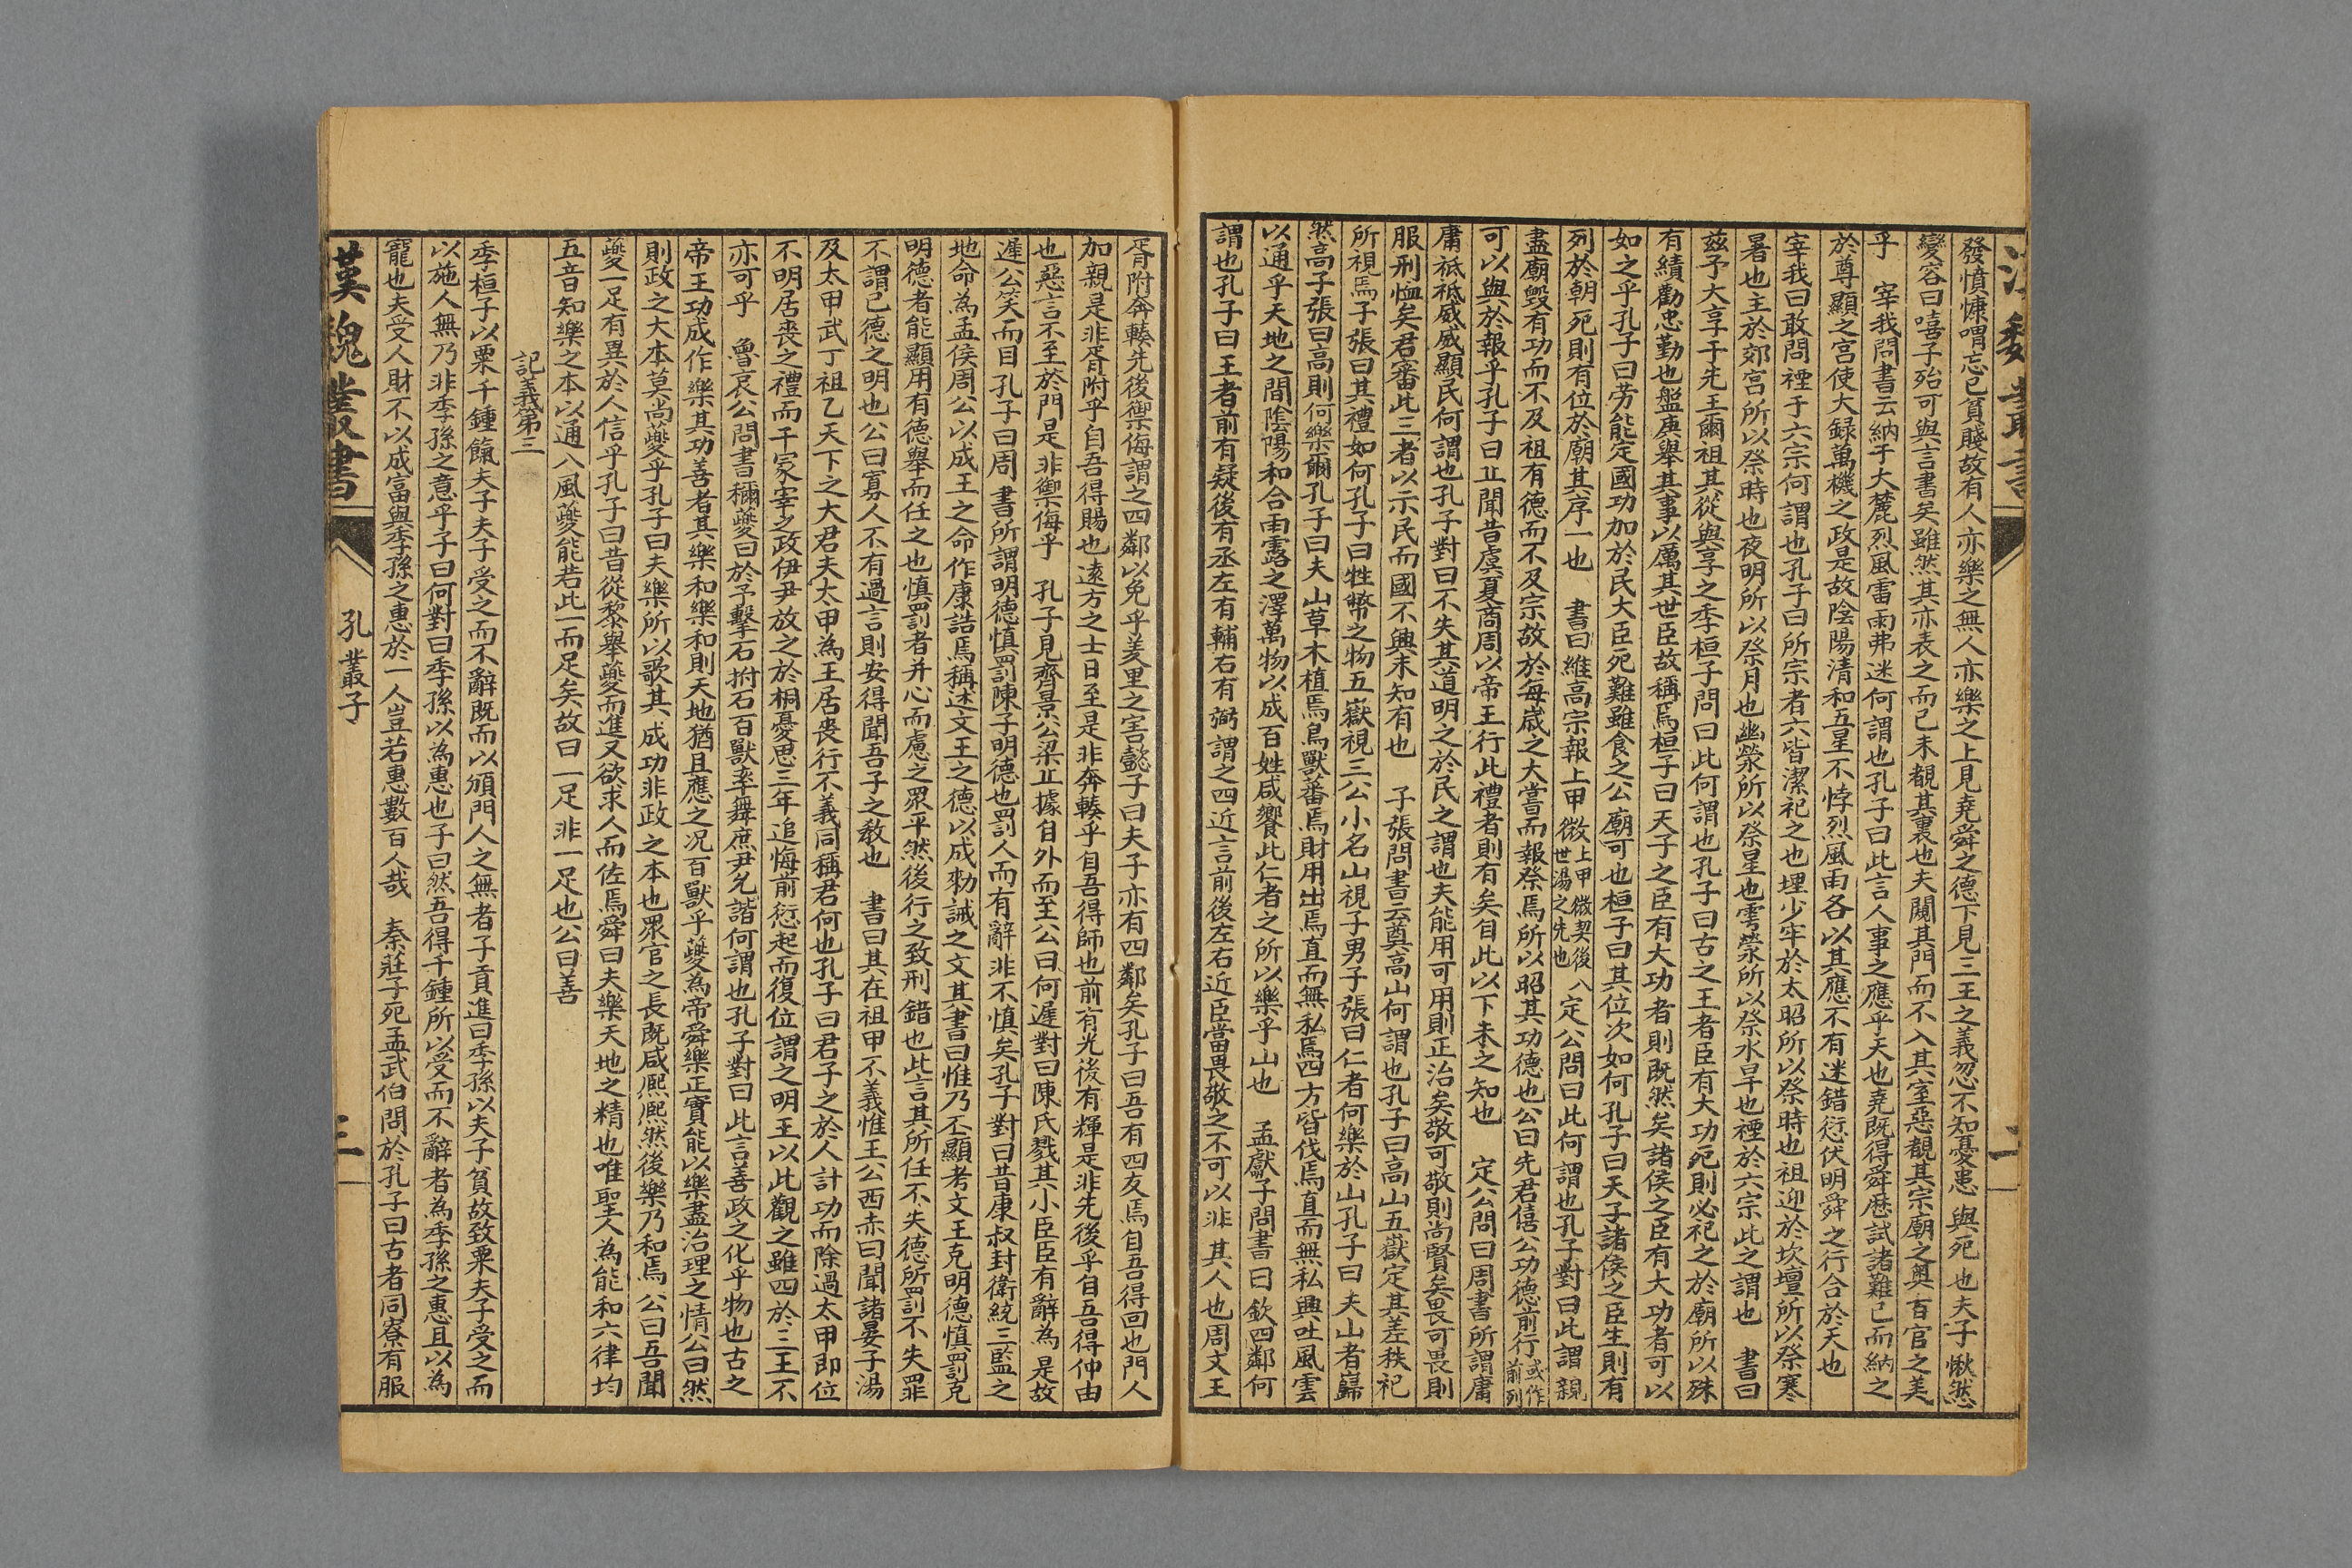 發憤慷喟忘己貧賤故有人亦樂之無人亦樂之上見堯舜之德下見三王之義忽不知憂患與死也夫子愀然
變容曰嘻子殆可與言書矣雖然其亦表之而已未覩其裏也夫闚其門而不入其室惡覩其宗廟之奥百官之美
乎　宰我問書云納于大麓烈風雷雨弗迷何謂也孔子曰此言人事之應乎天也堯既得舜歷試諸難已而納之
於尊顯之官使大録萬機之政是故陰陽清和五星不悖烈風雨各以其應不有迷錯愆伏明舜之行合於天也
宰我曰敢問禋于六宗何謂也孔子曰所宗者六皆潔祀之也埋少牢於太昭所以祭時也祖迎於坎壇所以祭寒
暑也主於郊宮所以祭時也夜明所以祭月也幽禜所以祭星也雩禜所以祭水旱也禋於六宗此之謂也　書曰
兹予大享于先王爾祖其從與享之季桓子問曰此何謂也孔子曰古之王者臣有大功死則必祀之於廟所以殊
有績勸忠勤也盤庚舉其事以厲其世臣故稱焉桓子曰天子之臣有大功者則既然矣諸侯之臣有大功者可以
如之乎孔子曰労能定國功加於民大臣死難雖食之公廟可也桓子曰其位次如何孔子曰天子諸侯之臣生則有
列於朝死則有位於廟其序一也　書曰維高宗報上甲微上甲微契後八世湯之先也定公問曰此何謂也孔子對曰此謂親
盡廟毀有功而不及祖有德而不及宗故於每歲之大嘗而報祭焉所以昭其功德也公曰先君僖公功德前行或作前列
可以與於報乎孔子曰丘聞昔虞夏商周以帝王行此禮者則有矣自此以下未之知也　定公問曰周書所謂庸
庸祗祗威威顯民何謂也孔子對曰不失其道明之於民之謂也夫能用可用則正治矣敬可敬則尚賢矣畏可畏則
服刑恤矣君審此三者以示民而國不興未知有也　子張問書云奠高山何謂也孔子曰高山五嶽定其差秩祀
所視焉子張曰其禮如何孔子曰牲幣之物五嶽視三公小名山視子男子張曰仁者何樂於山孔子曰夫山者巋
然高子張曰高則何樂爾孔子曰夫山草木植焉鳥獸蕃焉財用出焉直而無私焉四方皆伐焉直而無私興吐風雲
以通乎天地之間陰陽和合雨露之澤萬物以成百姓咸饗此仁者之所以樂乎山也　孟獻子問書曰欽四鄰何
謂也孔子曰王者前有疑後有丞左有輔右有弼謂之四近言前後左右近臣當畏敬之不可以非其人也周文王
胥附奔輳先後禦侮謂之四鄰以免乎羑里之害懿子曰夫子亦有四鄰矣孔子曰吾有四友焉自吾得回也門人
加親是非胥附乎自吾得賜也遠方之士日至是非奔輳乎自吾得師也前有光後有輝是非先後乎自吾得仲由
也惡言不至於門是非禦侮乎　孔子見齊景公梁丘據自外而至公曰何遲對曰陳氏戮其小臣臣有辭為是故
遲公笑而目孔子曰周書所謂明德慎罰陳子明德也罰人而有辭非不慎矣孔子對曰昔康叔封衛統三監之
地命為孟侯周公以成王之命作康誥焉稱述文王之德以成勑誡之文其書曰惟乃丕顯考文王克明德慎罰克
明德者能顯用有德舉而任之也慎罰者并心而慮之眾平然後行之致刑錯也此言其所任不失德所罰不失罪
不謂已德之明也公曰寡人不有過言則安得聞吾子之教也　書曰其在祖甲不義惟王公西赤曰聞諸晏子湯
及太甲武丁祖乙天下之大君夫太甲為王居喪行不義同稱君何也孔子曰君子之於人計功而除過太甲即位
不明居喪之禮而干冢宰之政伊尹放之於桐憂思三年追悔前愆起而復位謂之明王以此觀之雖四於三王不
亦可乎　魯哀公問書稱夔曰於予擊石拊石百獸率舞庶尹允諧何謂也孔子對曰此言善政之化乎物也古之
帝王功成作樂其功善者其樂和樂和則天地猶且應之况百獸乎夔為帝舜樂正實能以樂盡治理之情公曰然
則政之大本莫尚夔乎孔子曰夫樂所以歌其成功非政之本也眾官之長既咸熙熙然後樂乃和焉公曰吾聞
夔一足有異於人信乎孔子曰昔從黎舉夔而進又欲求人而佐焉舜曰夫樂天地之精也唯聖人為能和六律均
五音知樂之本以通八風夔能若此一而足矣故曰一足非一足也公曰善
記義第三
季桓子以粟千鍾餼夫子夫子受之而不辭既而以頒門人之無者子貢進曰季孫以夫子貧故致粟夫子受之而
以施人無乃非季孫之意乎子曰何對曰季孫以為惠也子曰然吾得千鍾所以受而不辭者為季孫之惠且以為
寵也夫受人財不以成富與季孫之惠於一人豈若惠數百人哉　秦莊子死孟武伯問於孔子曰古者同寮有服
漢魏叢書　孔叢子　三